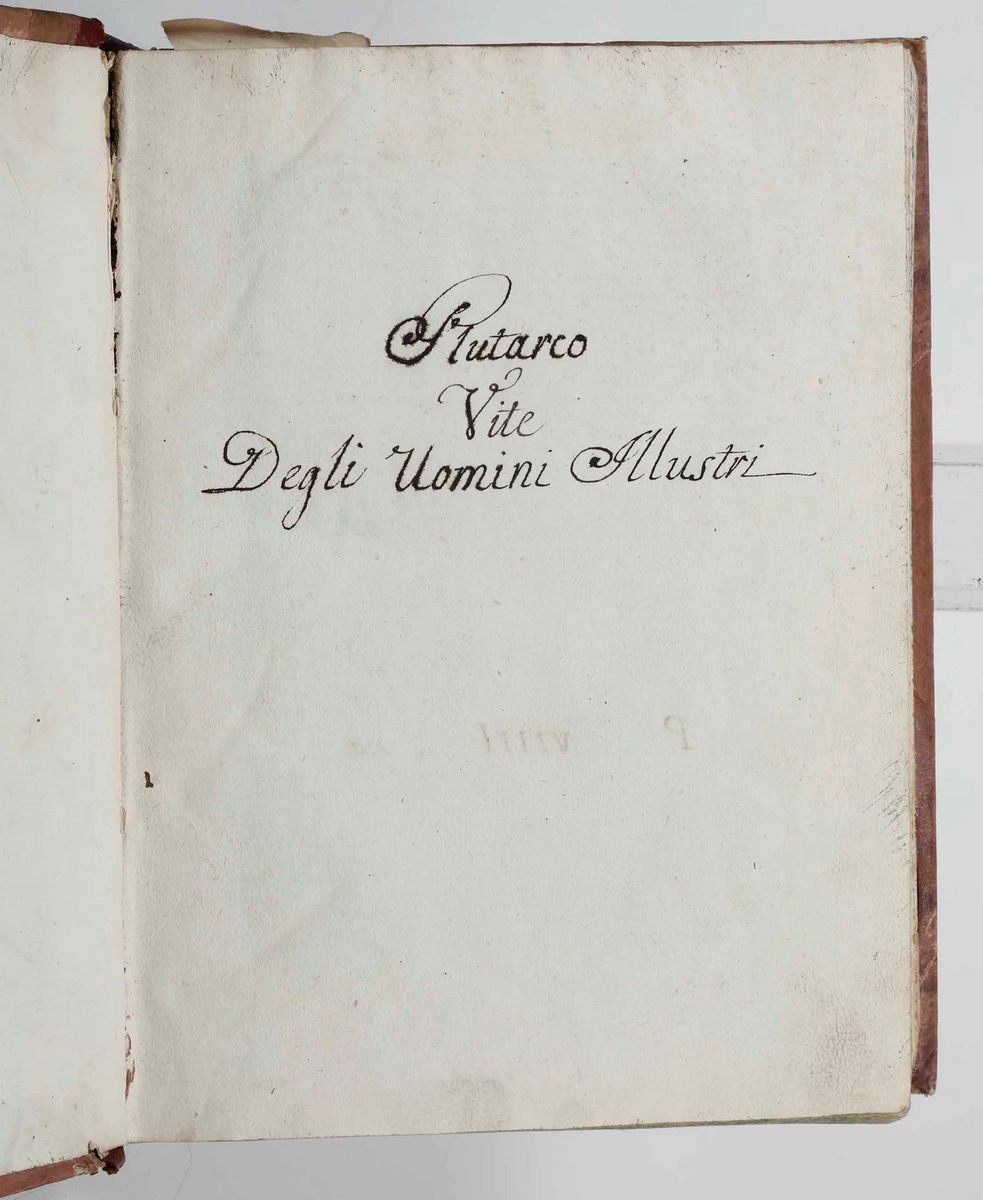 Plutarco
Vite
Degli Uomini Illustri